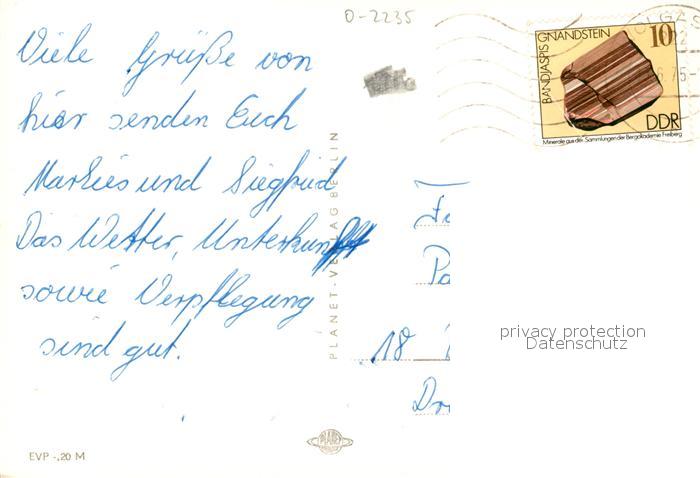 O-2235
Viele Grüße von
hier senden Euch
Marlies und Siegfried
Das Wetter, Unterkunft
sowie Verpflegung
sind gut.
PLANET-VERLAG BERLIN
BANDJASPIS GNANDSTEIN
10
DDR
Minerale aus den Sammlungen der Bergakademie Freiberg
18
privacy protection
Datenschutz
PLANET
EVP -,20 M